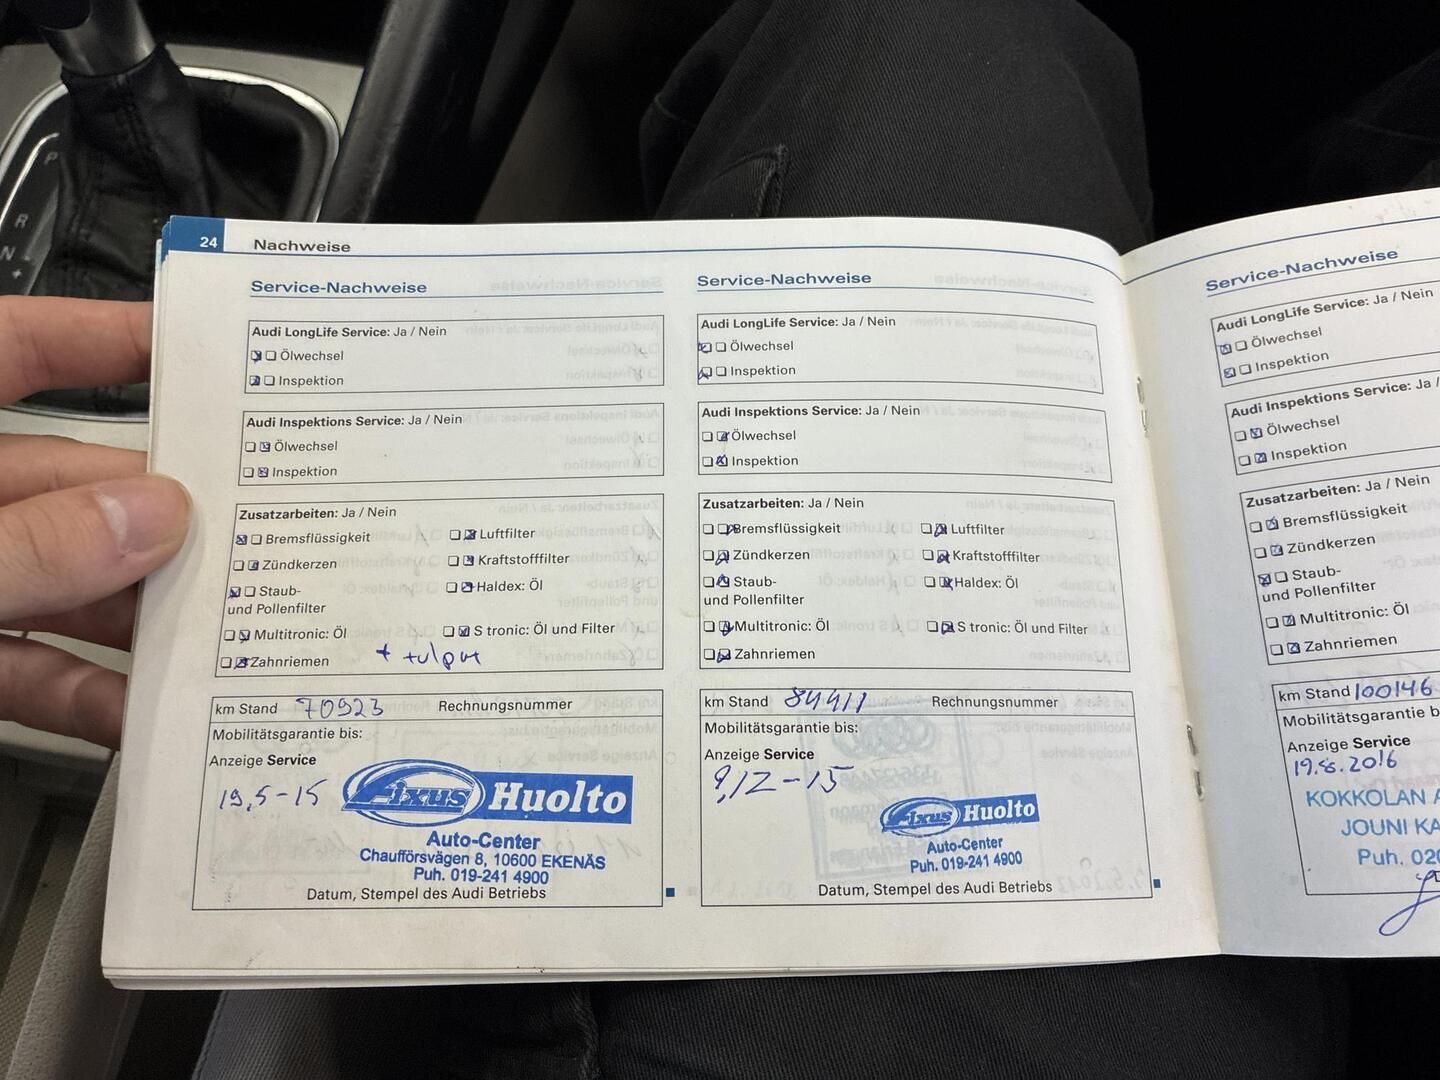 P
R
N
+
24 Nachweise
Service-Nachweise
Audi LongLife Service: Ja / Nein
Ölwechsel
Inspektion
Audi Inspektions Service: Ja / Nein
Ölwechsel
Inspektion
Zusatzarbeiten: Ja / Nein
Bremsflüssigkeit Luftfilter
Zündkerzen Kraftstofffilter
Staub- Haldex: Öl
und Pollenfilter
Multitronic: Öl S tronic: Öl und Filter
Zahnriemen + tulput
km Stand 70923 Rechnungsnummer
Mobilitätsgarantie bis:
Anzeige Service
19,5-15
Fixus Huolto
Auto-Center
Chaufförsvägen 8, 10600 EKENÄS
Puh. 019-241 4900
Datum, Stempel des Audi Betriebs
Service-Nachweise
Audi LongLife Service: Ja / Nein
Ölwechsel
Inspektion
Audi Inspektions Service: Ja / Nein
Ölwechsel
Inspektion
Zusatzarbeiten: Ja / Nein
Bremsflüssigkeit Luftfilter
Zündkerzen Kraftstofffilter
Staub- Haldex: Öl
und Pollenfilter
Multitronic: Öl S tronic: Öl und Filter
Zahnriemen
km Stand 84411 Rechnungsnummer
Mobilitätsgarantie bis:
Anzeige Service
9,12-15
Fixus Huolto
Auto-Center
Puh. 019-241 4900
Datum, Stempel des Audi Betriebs
Service-Nachweise
Audi LongLife Service: Ja / Nein
Ölwechsel
Inspektion
Audi Inspektions Service: Ja /
Ölwechsel
Inspektion
Zusatzarbeiten: Ja / Nein
Bremsflüssigkeit
Zündkerzen
Staub-
und Pollenfilter
Multitronic: Öl
Zahnriemen
km Stand 100146
Mobilitätsgarantie b
Anzeige Service
19.8.2016
KOKKOLAN A
JOUNI KA
Puh. 020